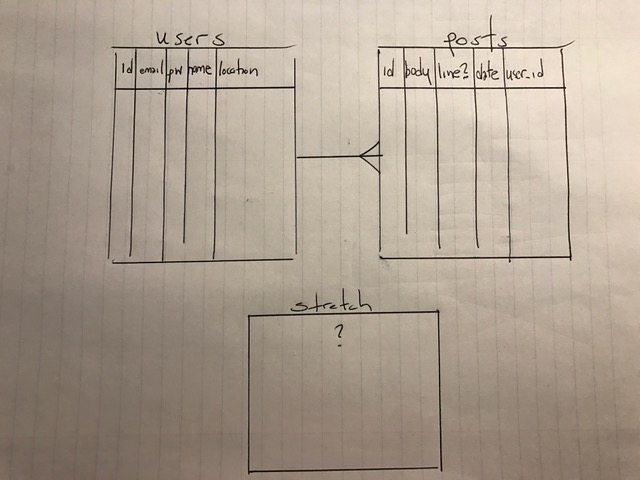 users
id email pw name location
posts
id body line? date user_id
stretch
?